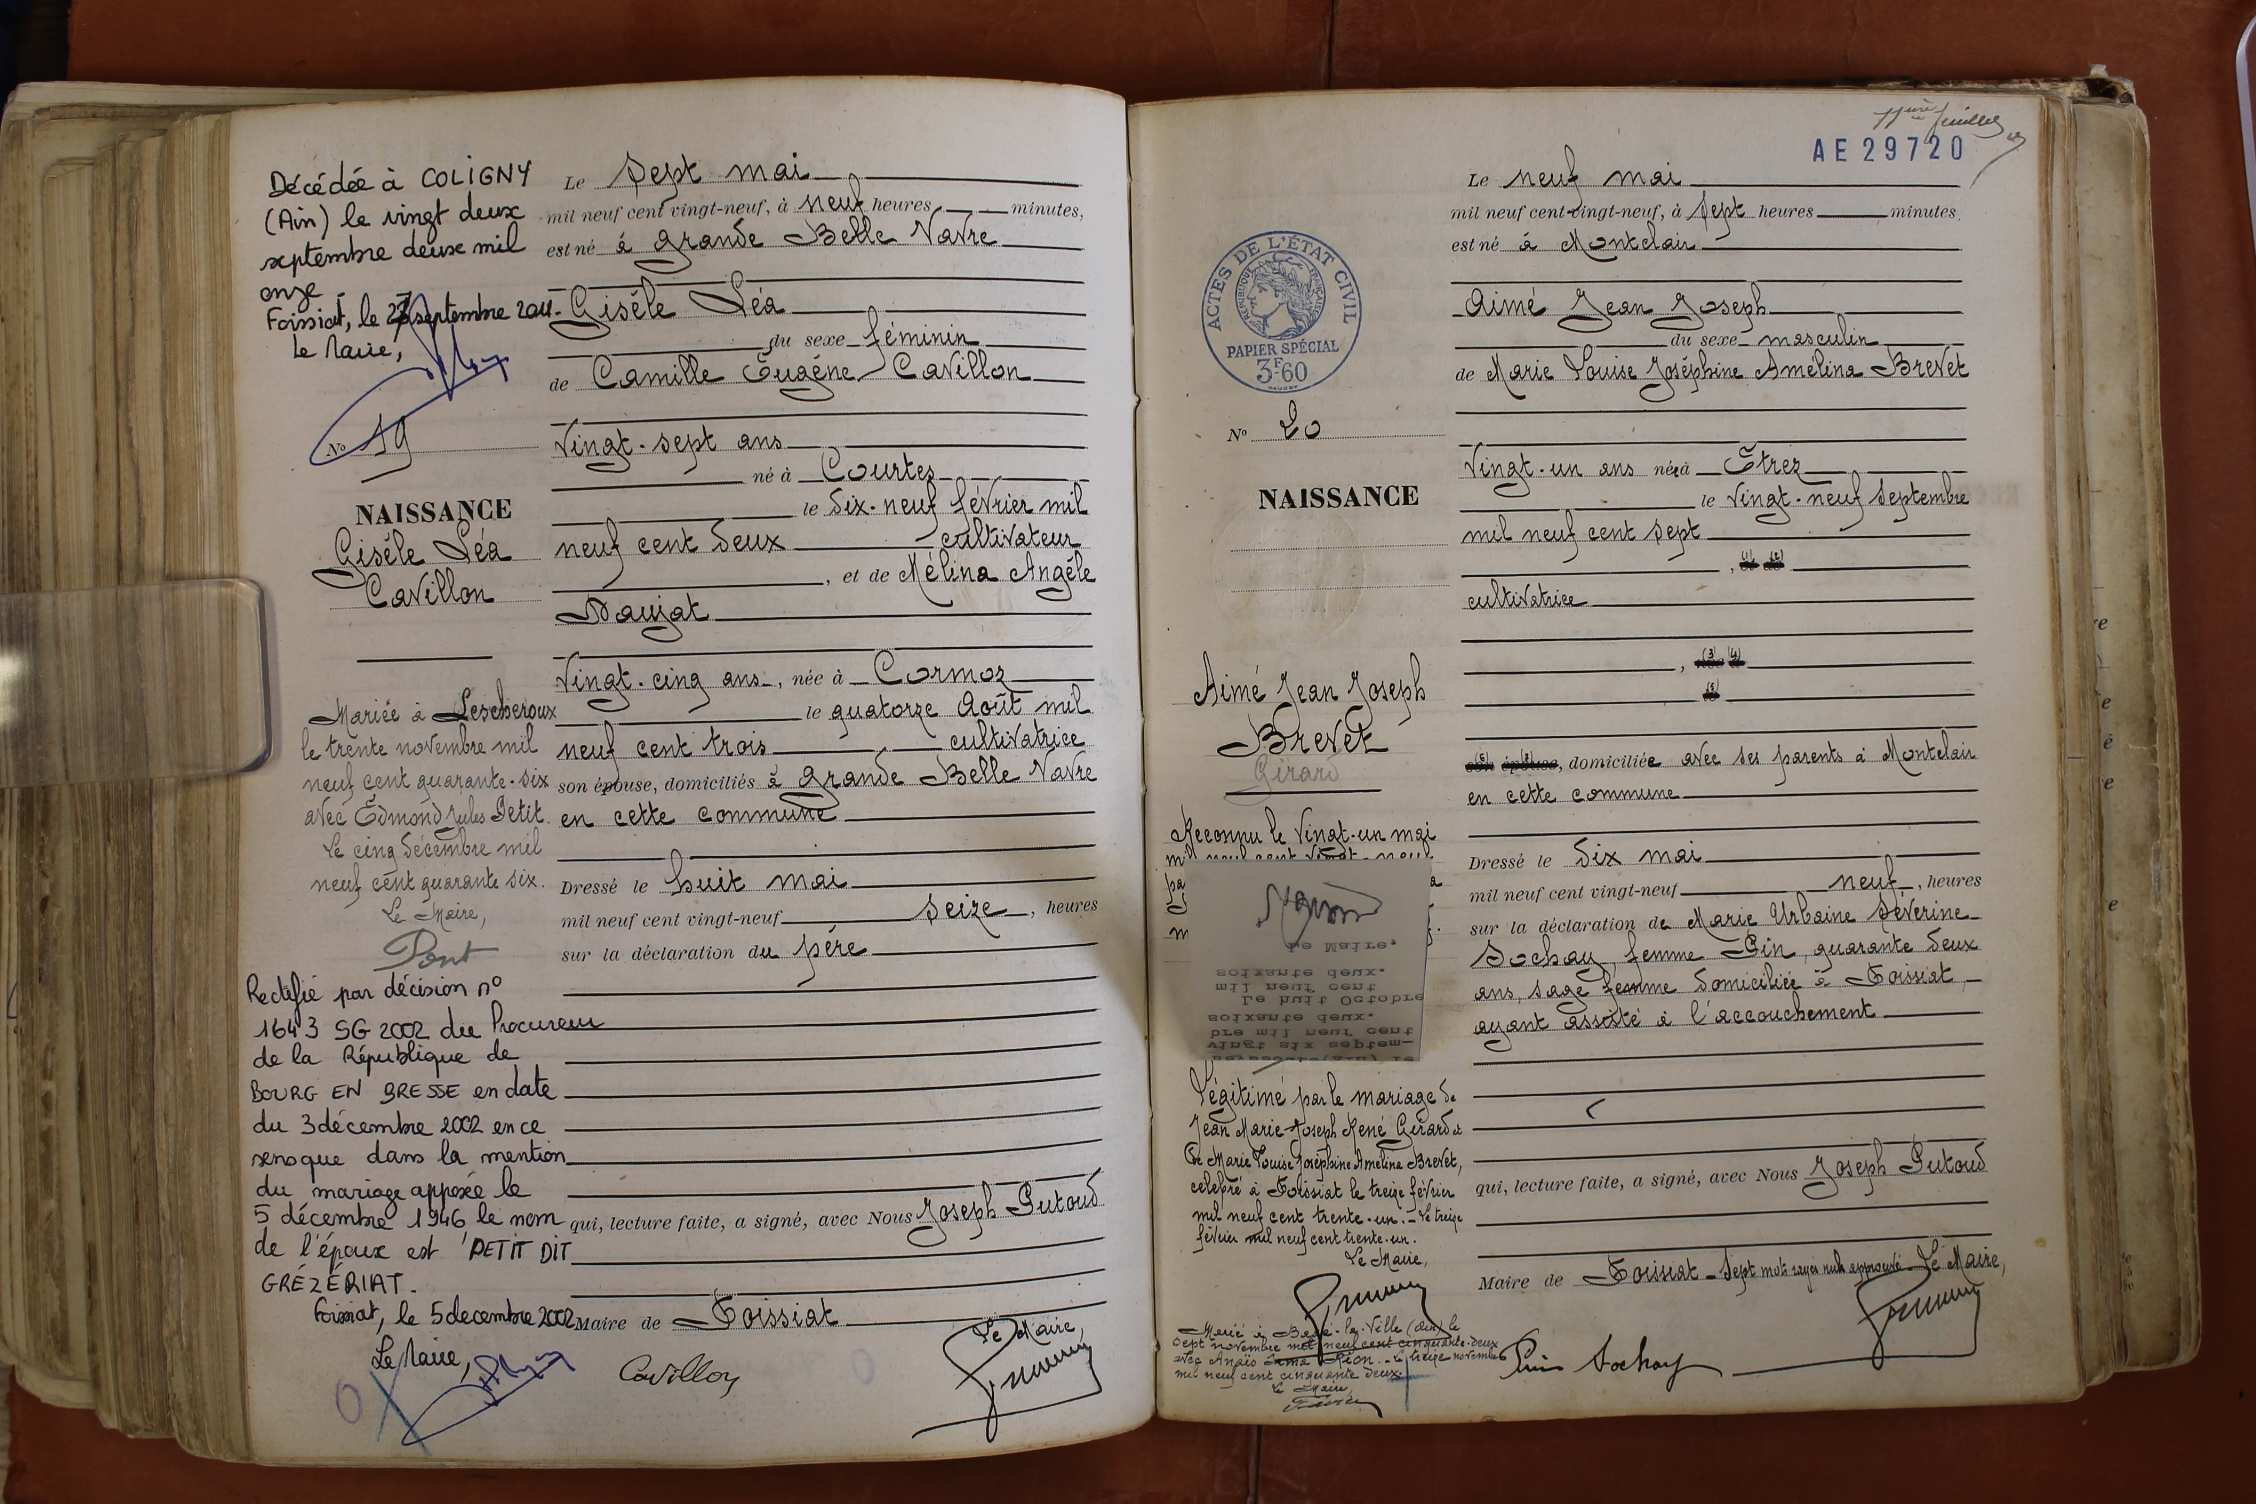 Décédée à COLIGNY
(Ain) le vingt deux
septembre deux mil
onze.
Foissiat, le 27 septembre 2011.
Le Maire,
No 19
NAISSANCE
Gisèle Léa
Cavillon
Mariée à Lescheroux
le trente novembre mil
neuf cent quarante-six
avec Edmond Jules Petit.
Le cinq décembre mil
neuf cent quarante six.
Le Maire,
Pont
Rectifié par décision n°
1643 SG 2002 du Procureur
de la République de
BOURG EN BRESSE en date
du 3 décembre 2002 en ce
sens que dans la mention
du mariage apposée le
5 décembre 1946 le nom
de l'époux est "PETIT DIT
GRÉZÉRIAT.
Foissiat, le 5 decembre 2002
Le Maire,
Le sept mai
mil neuf cent vingt-neuf, à neuf heures minutes,
est né à Grande Belle Vavre
Gisèle Léa
du sexe féminin
de Camille Eugène Cavillon
Vingt-sept ans
né à Courtes
le dix-neuf février mil
neuf cent deux cultivateur
, et de Mélina Angèle
Daujat
Vingt-cinq ans, née à Cormoz
le quatorze Août mil
neuf cent trois cultivatrice
son épouse, domiciliés à Grande Belle Vavre
en cette commune
Dressé le huit mai
mil neuf cent vingt-neuf seize, heures
sur la déclaration du père
qui, lecture faite, a signé, avec Nous Joseph Putoud
Maire de Foissiat
Le Maire,
Cavillon
11ème feuillet
AE 29720
ACTES DE L'ÉTAT CIVIL
RÉPUBLIQUE FRANÇAISE
PAPIER SPÉCIAL
3F60
No 20
NAISSANCE
Aimé Jean Joseph
Brevet
Girard
Reconnu le Vingt-un mai
mil neuf cent vingt-neuf
Le Maire,
soixante deux.
mil neuf cent
Le huit Octobre
soixante deux.
bre mil neuf cent
vingt six septem-
Légitimé par le mariage de
Jean Marie Joseph René Girard et
de Marie Louise Joséphine Amélina Brevet,
célébré à Foissiat le treize février
mil neuf cent trente-un. - Le treize
février mil neuf cent trente-un.
Le Maire,
Marié à Bâgé-la-Ville (Ain) le
sept novembre mil neuf cent cinquante-deux
avec Anaïs Irma Pion. - Le treize novembre
mil neuf cent cinquante deux.
Le Maire,
Le neuf mai
mil neuf cent vingt-neuf, à sept heures minutes
est né à Montclair
Aimé Jean Joseph
du sexe masculin
de Marie Louise Joséphine Amélina Brevet
Vingt-un ans née à Étrez
le vingt-neuf septembre
mil neuf cent sept
, (1) (2)
cultivatrice
, (3) (4)
(5)
son épouse, domiciliée avec ses parents à Montclair
en cette commune
Dressé le dix mai
mil neuf cent vingt-neuf neuf, heures
sur la déclaration de Marie Urbaine Séverine
Sochay, femme Pin, quarante deux
ans, sage femme domiciliée à Foissiat,
ayant assisté à l'accouchement
qui, lecture faite, a signé, avec Nous Joseph Putoud
Maire de Foissiat - Sept mots rayés nuls approuvé Le Maire,
Pin Sochay